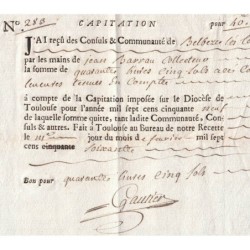 No 280 CAPITATION pour 60
J'AI reçu des Consuls & Communauté de Belbeze
par les mains de jean Barrau Collecteur
la somme de quarante livres cinq sols
tenues du Compte
à compte de la Capitation imposée sur le Diocèse de
Toulouse pour l'année mil sept cens cinquante neuf
de laquelle somme quitte, tant ladite Communauté, Con-
suls & autres. Fait à Toulouse au Bureau de notre Recette
le jour du mois de fevrier mil
sept cens cinquante soixante
Bon pour quarante livres cinq sols
Gautier